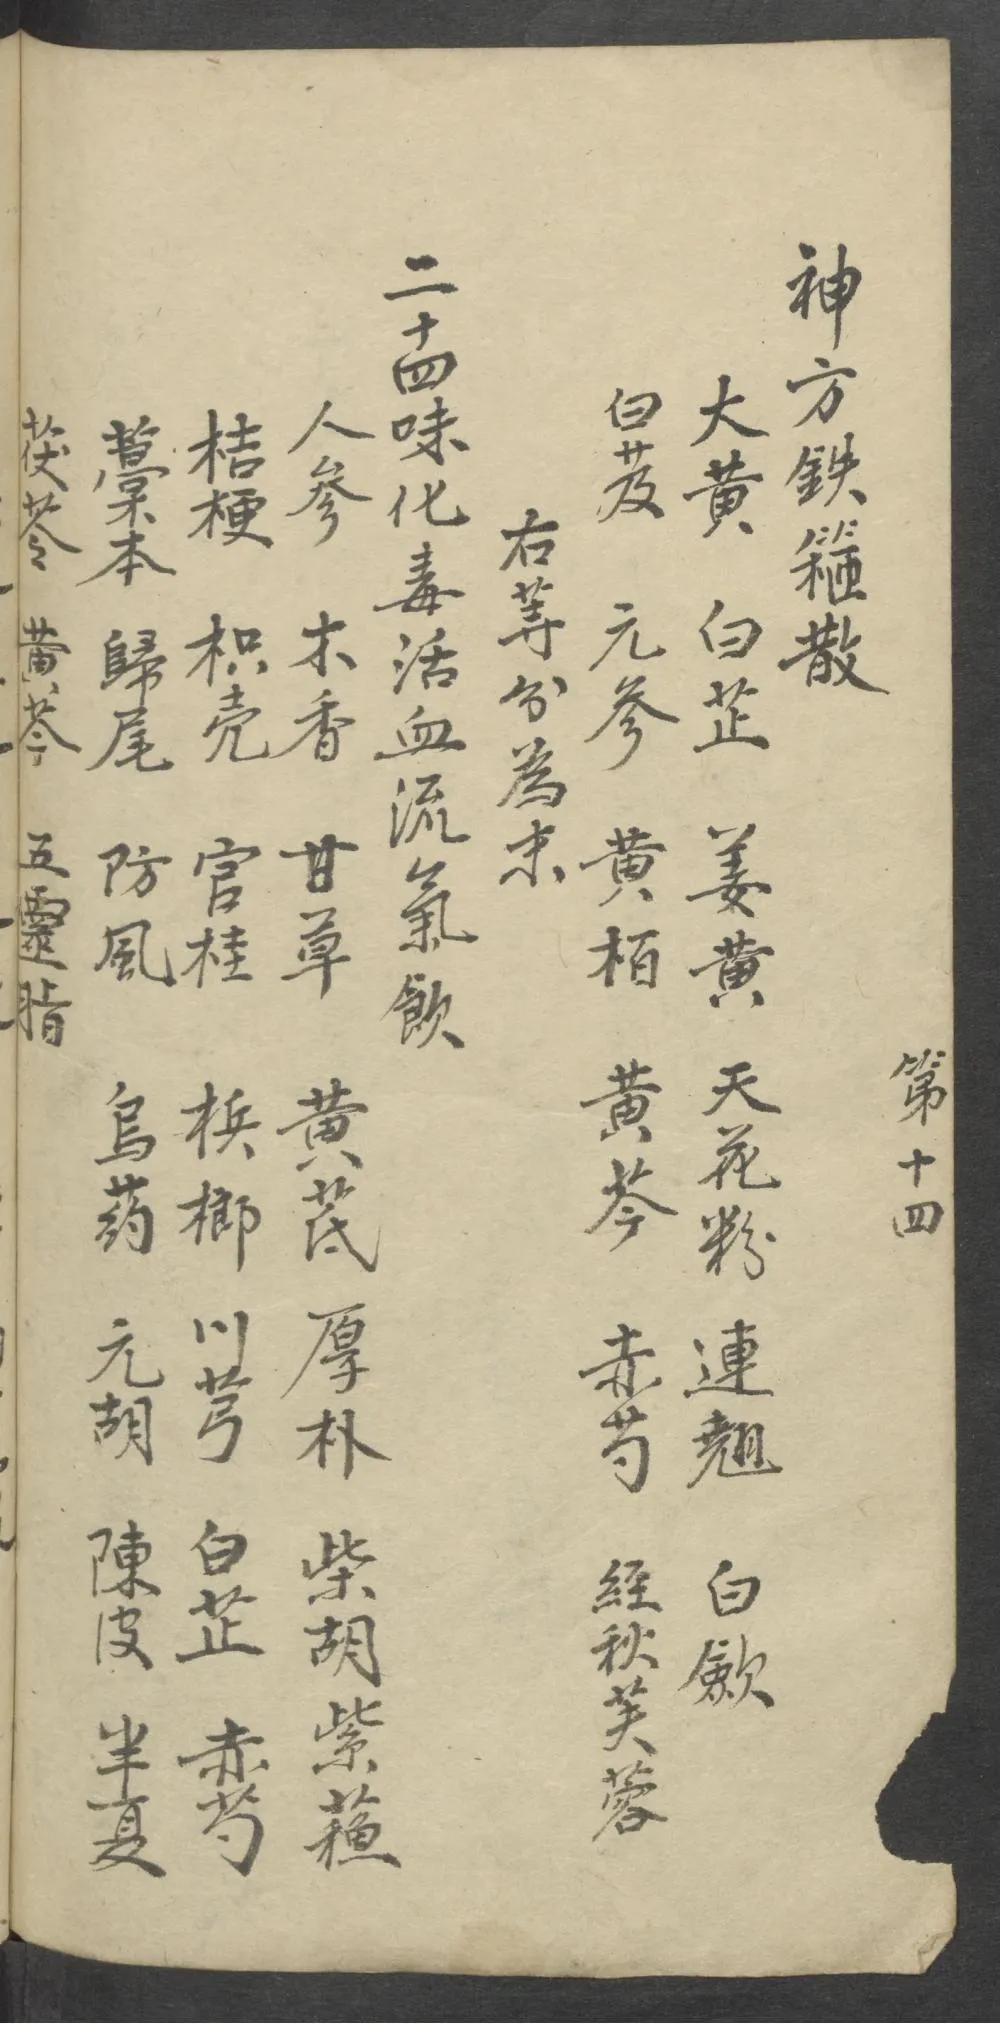 第十四
神方鉄箍散
大黄 白芷 姜黄 天花粉 連翹 白歛
白芨 元参 黄栢 黄芩 赤芍 經秋芙蓉
右等分為末
二十四味化毒活血流氣飲
人參 木香 甘草 黄芪 厚朴 柴胡 紫蘓
桔梗 枳壳 官桂 梹榔 川芎 白芷 赤芍
藁本 歸尾 防風 烏药 元胡 陳皮 半夏
茯苓 黄芩 五靈脂